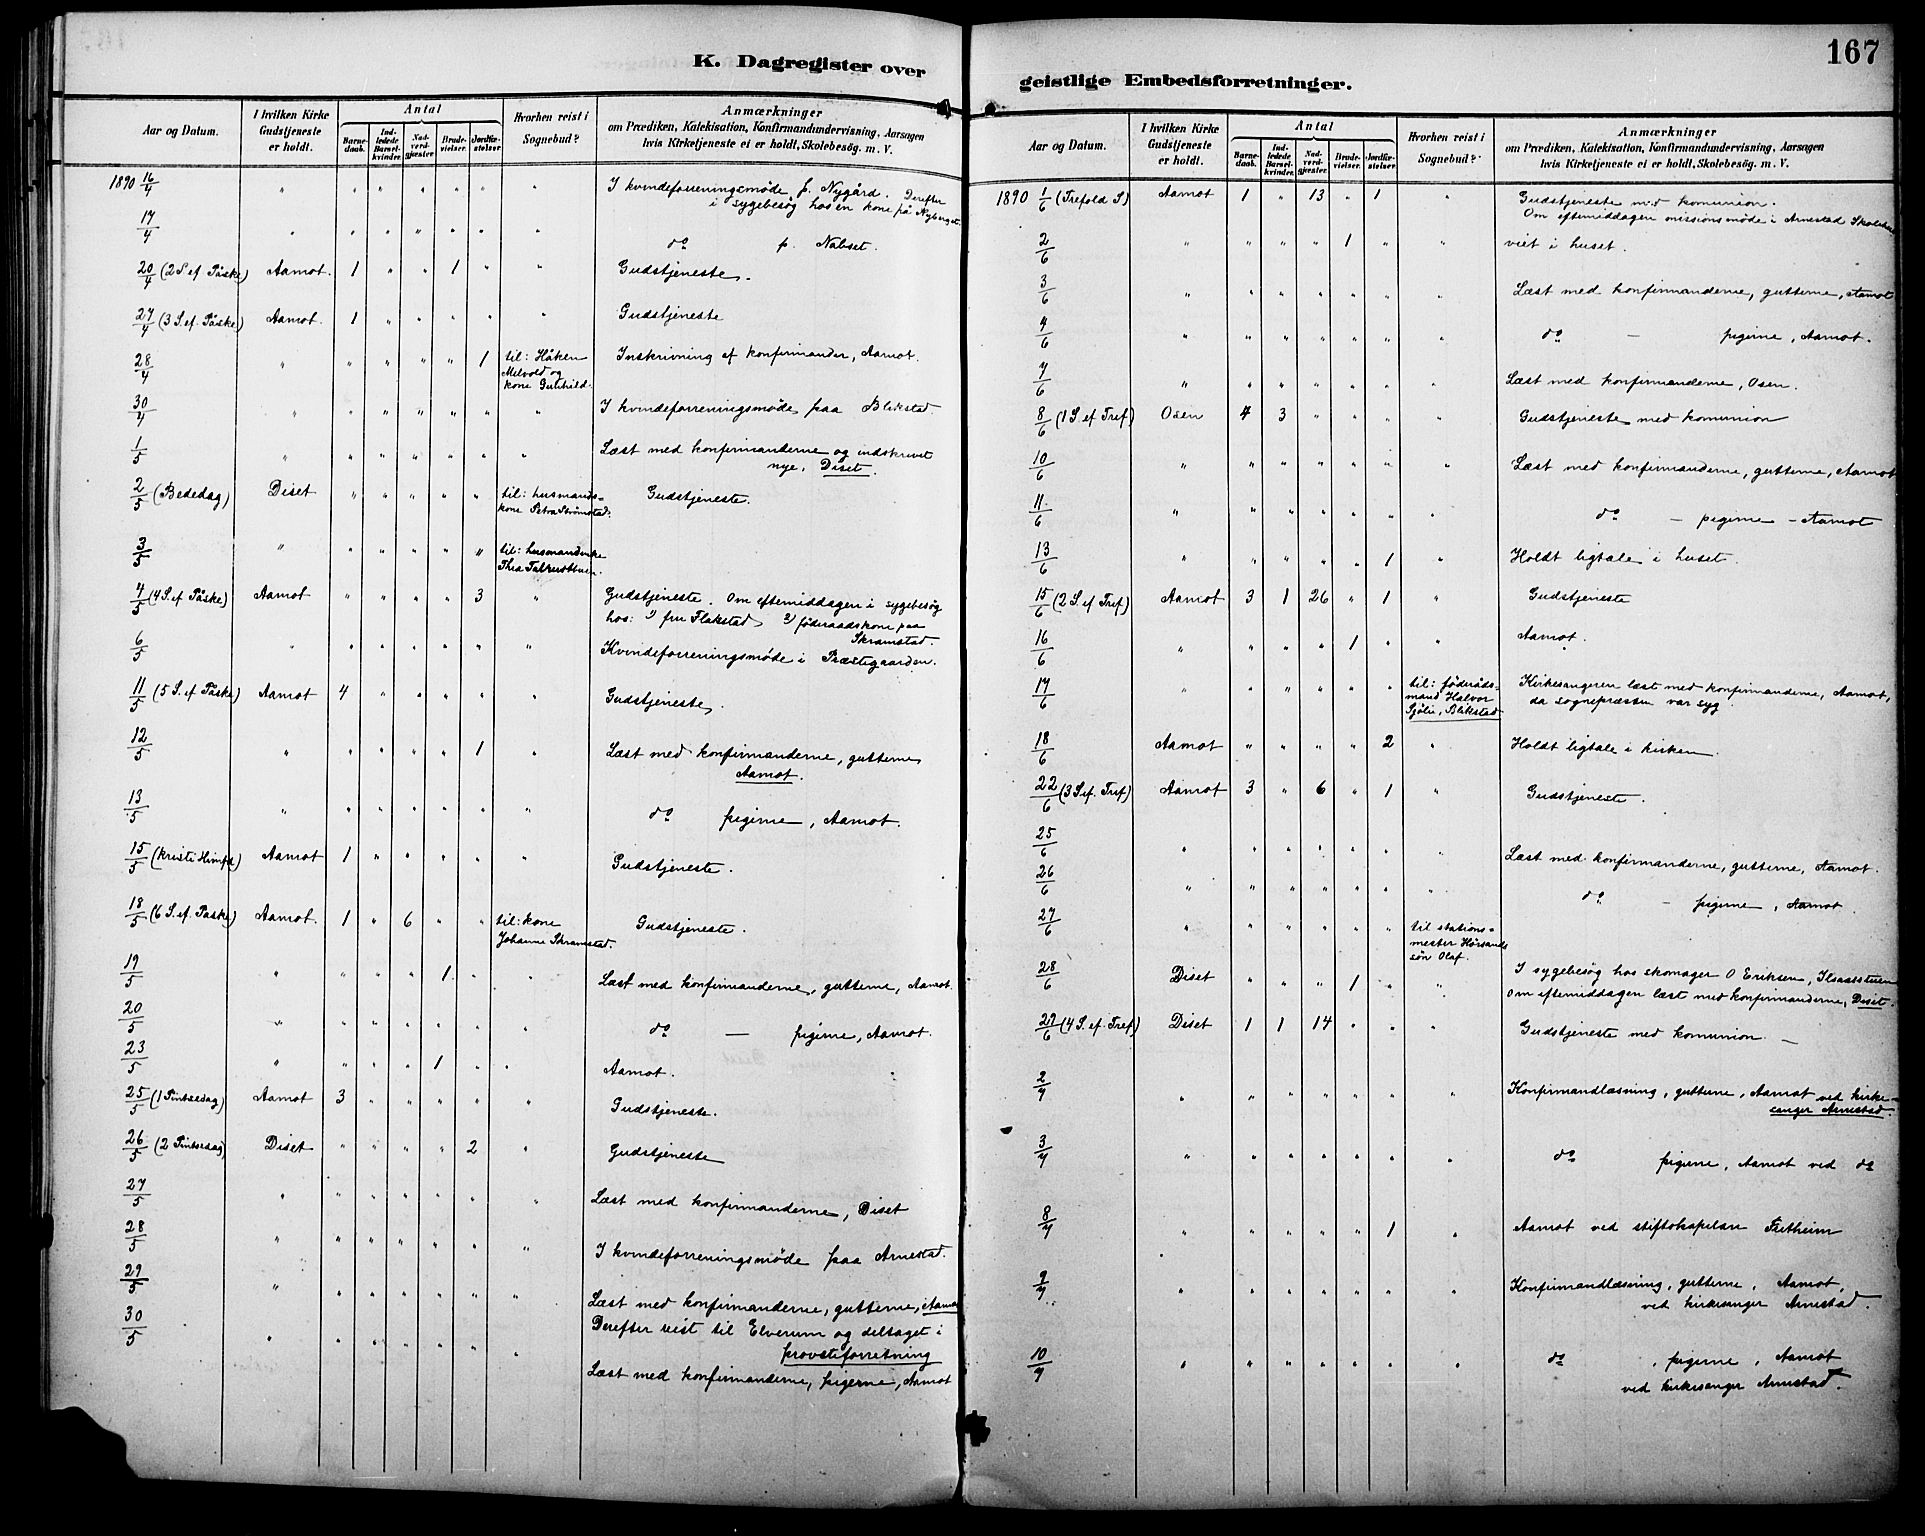 K. Dagregister over
Aar og Datum. I hvilken Kirke Gudstjeneste er holdt. Antal Barnedaab. Indledede Barselkvinder. Nadverdgjester. Brudevielser. Jordfæstelser. Hvorhen reist i Sognebud? Anmærkninger
om Prædiken, Katekisation, Konfirmandundervisning, Aarsagen
hvis Kirketjeneste ei er holdt, Skolebesög. m. V.
1890 16/4 " " " " " " " I kvindeforreningsmöde p. Nygård. Derefter
i sygebesøg hos en kone på Nyberget.
17/4 " " " " " " " do p. Nabset.
20/4 (2 S. ef. Påske) Aamot. 1 " " 1 " " Gudstjeneste.
27/4 (3 S. ef. Påske) Aamot. 1 " " " " " Gudstjeneste
28/4 " " " " " 1 til: Håken Inskrivning af konfirmander, Aamot.
Melvold og
kone Gunhild.
30/4 " " " " " " " I kvindeforreningsmöde paa Blikstad.
1/5 " " " " " " " Læst med konfirmanderne og indskrevet
nye, Diset.
2/5 (Bededag) Diset " " " " " til: husmands- Gudstjeneste.
kone Petra Strömstad.
3/5 " " " " " " til: husmandenke
Thea
4/5 (4 S. ef Påske) Aamot " " " " 3 " Gudstjeneste. Om eftemiddagen i sygebesøg
hos: 1) fru Flakstad 2) föderaadskone paa
Skramstad.
6/5 " " " " " " " Kvindeforreningsmöde i Præstegaarden.
11/5 (5 S. ef Påske) Aamot 4 " " " " " Gudstjeneste.
12/5 " " " " " 1 " Læst med konfirmanderne, gutterne
Aamot.
13/5 " " " " " " " do pigerne, Aamot.
15/5 (Kristi Himfd) Aamot 1 " " " " " Gudstjeneste.
18/5 (6 S. ef. Påske) Aamot. 1 " 6 " " til: kone Gudstjeneste.
Johanne Skramstad.
19/5 " " " " 1 " " Læst med konfirmanderne, gutterne, Aamot.
20/5 " " " " " " " do — pigerne, Aamot.
23/5 " " " " 1 " " Aamot.
25/5 (1 Pintsedag) Aamot 3 " " " " " Gudstjeneste.
26/5 (2 Pintsedag) Diset " " " " 2 " Gudstjeneste
27/5 " " " " " " " Læst med konfirmanderne, Diset
28/5 " " " " " " " I kvindeforreningsmöde paa Arnestad.
29/5 " " " " " " " Læst med konfirmanderne, gutterne,
Derefter reist til Elverum og deltaget i
provstiforretning
30/5 " " " " " " " Læst med konfirmanderne, pigerne, Aamot
167
geistlige Embedsforretninger.
Aar og Datum. I hvilken Kirke Gudstjeneste er holdt. Antal Barnedaab. Indledede Barselkvinder. Nadverdgjester. Brudevielser. Jordfæstelser. Hvorhen reist i Sognebud? Anmærkninger
om Prædiken, Katekisation, Konfirmandundervisning, Aarsagen
hvis Kirketjeneste ei er holdt, Skolebesög. m. V.
1890 1/6 (Trefold S) Aamot 1 " 13 " 1 " Gudstjeneste med komunion.
Om eftemiddagen missionsmöde i Arnestad
2/6 " " " " 1 " " viet i huset.
3/6 " " " " " " " Læst med konfirmanderne, gutterne, Aamot
4/6 " " " " " " " do — pigerne, Aamot.
7/6 " " " " " " " Læst med konfirmanderne, Osen.
8/6 (1 S. ef Tref) Osen 4 3 " " " " Gudstjeneste med komunion
10/6 " " " " " " " Læst med konfirmanderne, gutterne, Aamot
11/6 " " " " " " " do — pigerne — Aamot
13/6 " " " " " 1 " Holdt ligtale i huset.
15/6 (2 S. ef Tref) Aamot 3 1 26 " 1 " Gudstjeneste
16/6 " " " " 1 " " Aamot.
17/6 " " " " " " til: föderåds- Kirkesangeren læst med konfirmanderne, Aamot,
mand Halvor da sognepræsten var syg.
Sjølie, Blikstad
18/6 Aamot " " " " 2 " Holdt ligtale i kirken.
22/6 (3 S. ef. Tref) Aamot 3 " 6 " 1 " Gudstjeneste.
25/6 " " " " " " " Læst med konfirmanderne, gutterne, Aamot.
26/6 " " " " " " " do — pigerne, Aamot.
27/6 " " " " " " til stations-
mester Hörsands
sön Olaf.
28/6 Diset " " " 1 " " I sygebesøg hos skomager O Eriksen,
om eftemiddagen læst med konfirmanderne, Diset.
29/6 (4 S. ef. Tref) Diset 1 1 14 " " " Gudstjeneste med komunion. —
2/7 " " " " " " " Konfirmandlæsning, gutterne, Aamot ved kirke-
sanger Arnestad.
3/7 " " " " " " " do pigerne, Aamot ved do
8/7 " " " " " 1 " Aamot ved stiftskapelan Fretheim
9/7 " " " " " " " Konfirmandlæsning, gutterne, Aamot,
ved kirkesanger Arnestad.
10/7 " " " " " " " do , pigerne, Aamot
ved kirkesanger Arnestad.